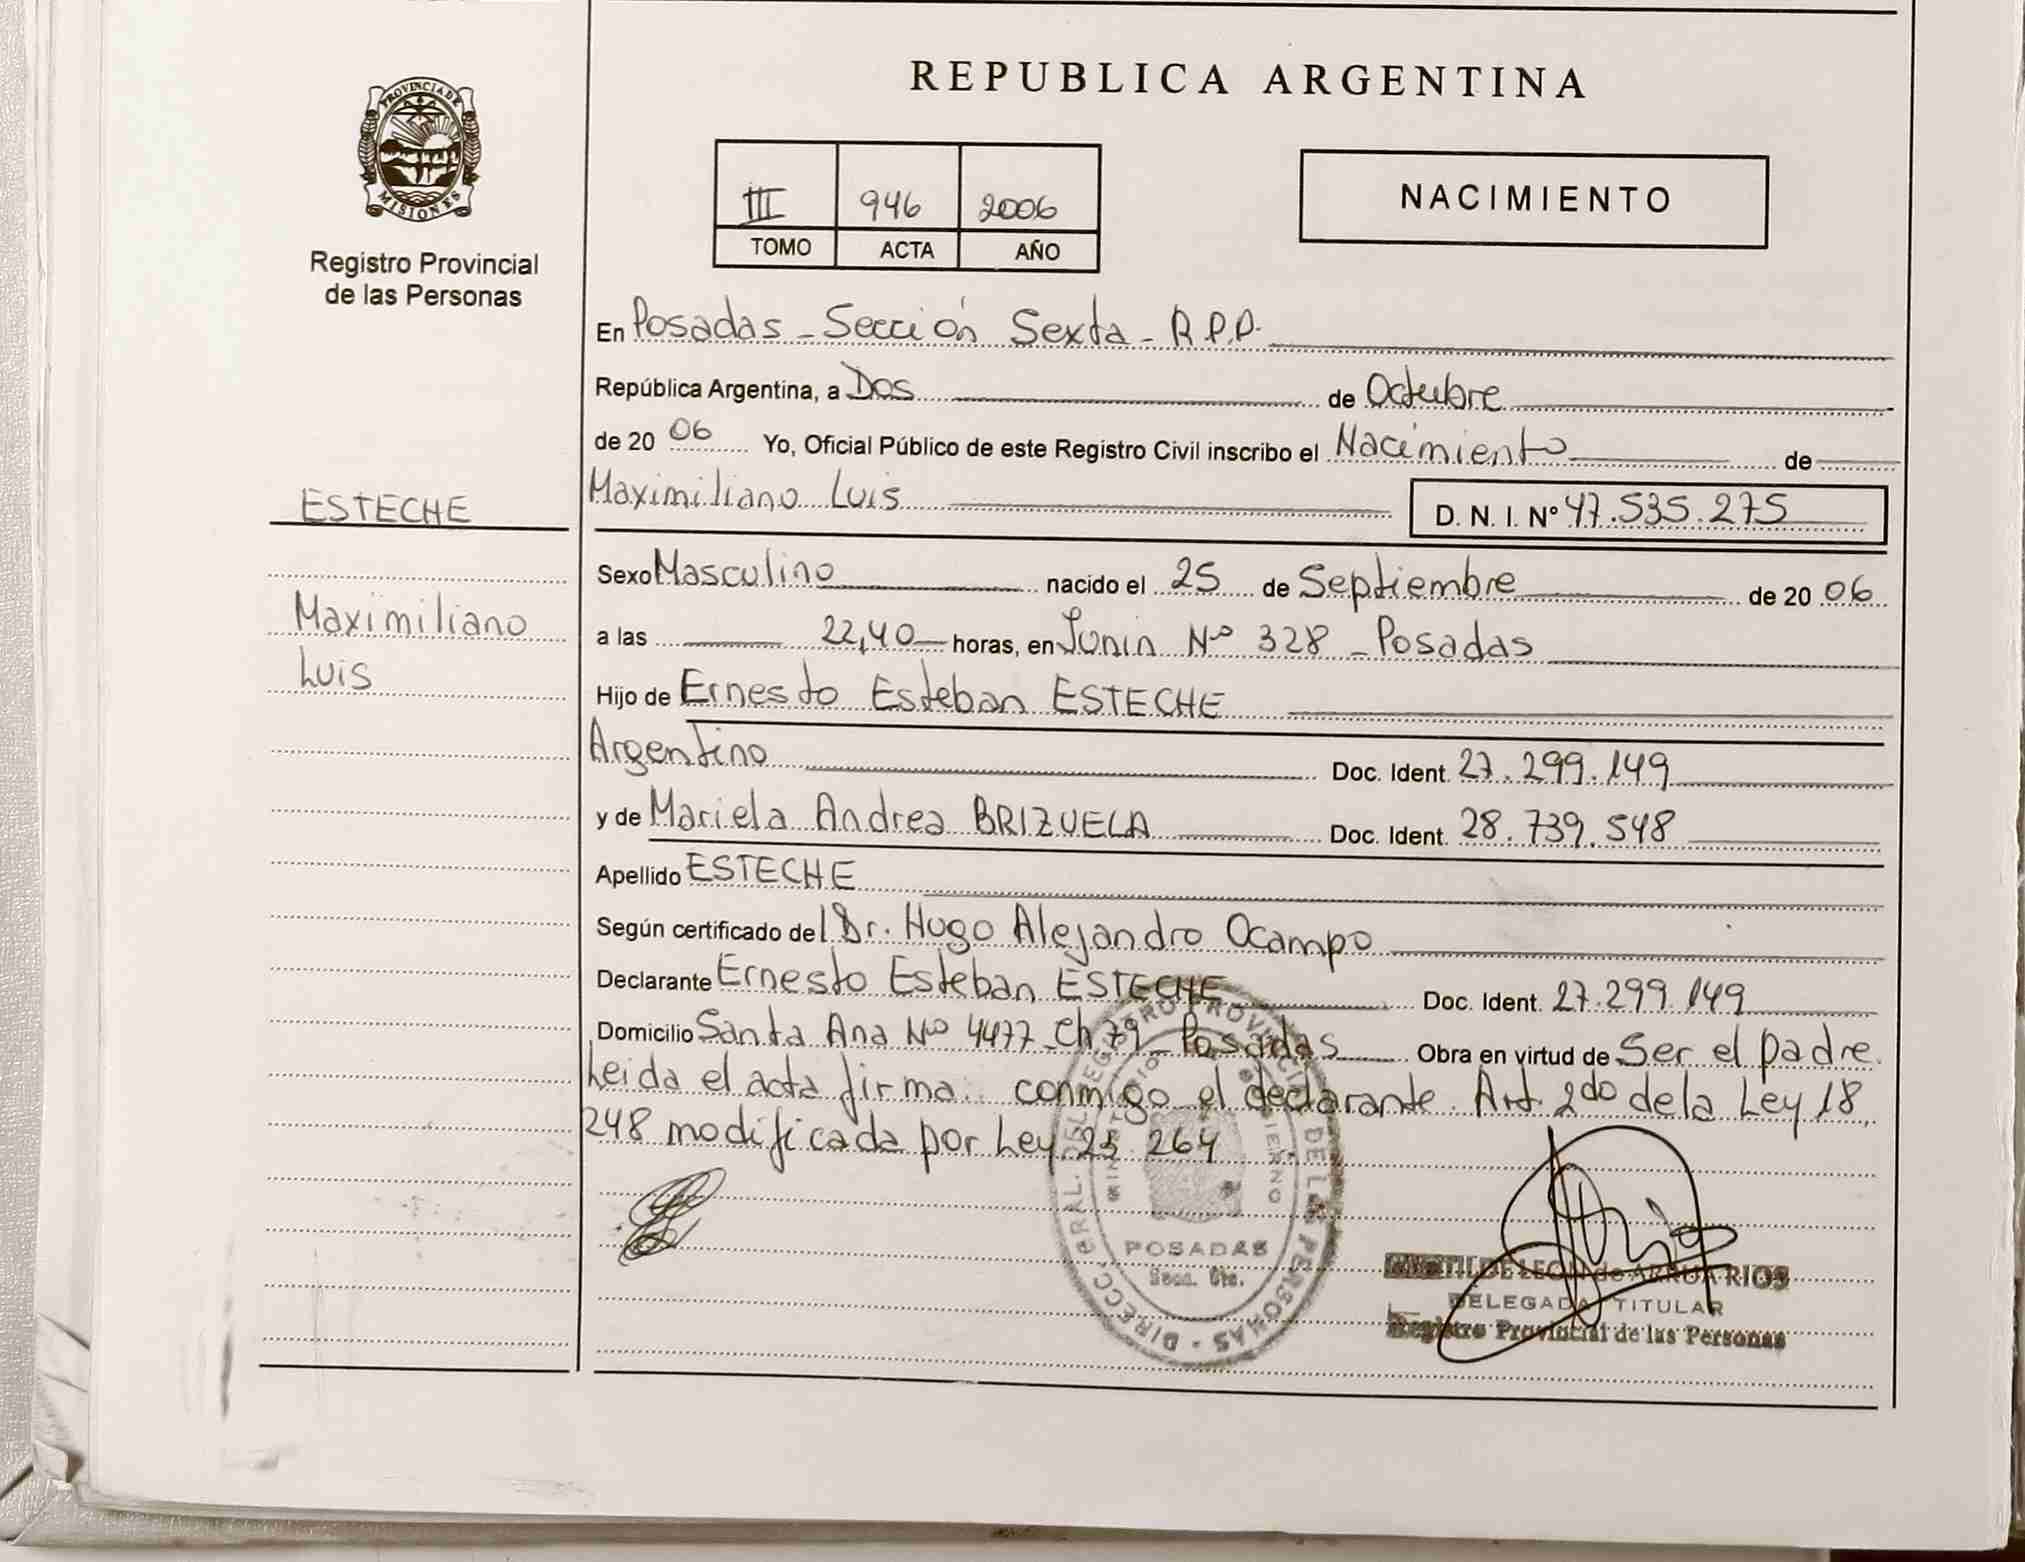 REPUBLICA ARGENTINA
PROVINCIA DE
MISIONES
Registro Provincial
de las Personas
III 946 2006
TOMO ACTA AÑO
NACIMIENTO
En Posadas - Sección Sexta - R.P.P.
República Argentina, a Dos de Octubre
de 2006 Yo, Oficial Público de este Registro Civil inscribo el Nacimiento de
ESTECHE
Maximiliano Luis D. N. I. Nº 47.535.275
Sexo Masculino nacido el 25 de Septiembre de 2006
Maximiliano
Luis
a las 22,40 horas, en Junin Nº 328 - Posadas
Hijo de Ernesto Esteban ESTECHE
Argentino Doc. Ident. 27.299.149
y de Mariela Andrea BRIZUELA Doc. Ident. 28.739.548
Apellido ESTECHE
Según certificado del Dr. Hugo Alejandro Ocampo
Declarante Ernesto Esteban ESTECHE Doc. Ident. 27.299.149
Domicilio Santa Ana Nº 4477 - Ch 79 - Posadas Obra en virtud de Ser el padre.
Leida el acta firma conmigo el declarante. Art. 2do de la Ley 18
248 modificada por Ley 25.264
DIRECC. GRAL. DEL REGISTRO PROVINCIAL DE LAS PERSONAS
POSADAS
Secc. 6ta.
LEON de ARRUA RIOS
DELEGADA TITULAR
Registro Provincial de las Personas